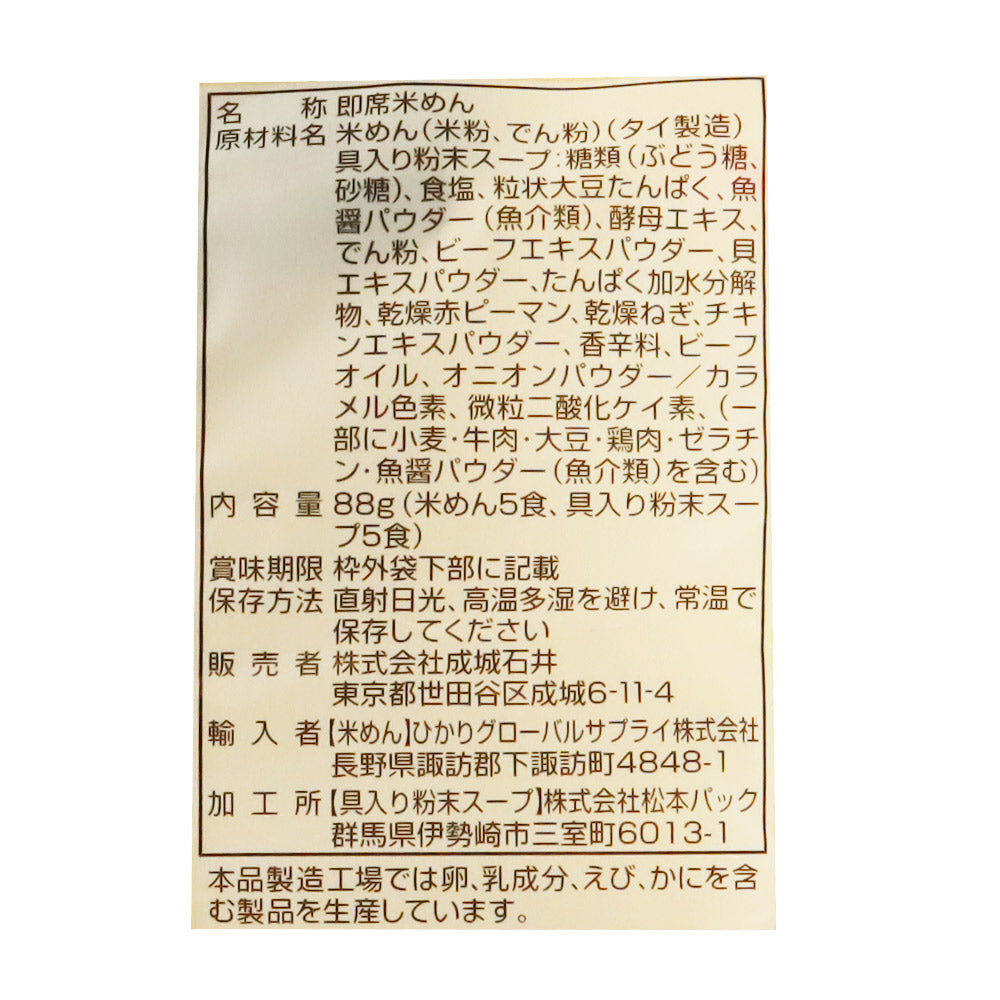 名称 即席米めん
原材料名 米めん(米粉、でん粉)(タイ製造)
具入り粉末スープ:糖類(ぶどう糖、
砂糖)、食塩、粒状大豆たんぱく、魚
醤パウダー(魚介類)、酵母エキス、
でん粉、ビーフエキスパウダー、貝
エキスパウダー、たんぱく加水分解
物、乾燥赤ピーマン、乾燥ねぎ、チキ
ンエキスパウダー、香辛料、ビーフ
オイル、オニオンパウダー/カラ
メル色素、微粒二酸化ケイ素、(一
部に小麦・牛肉・大豆・鶏肉・ゼラチ
ン・魚醤パウダー(魚介類)を含む)
内容量 88g(米めん5食、具入り粉末スー
プ5食)
賞味期限 枠外袋下部に記載
保存方法 直射日光、高温多湿を避け、常温で
保存してください
販売者 株式会社成城石井
東京都世田谷区成城6-11-4
輸入者【米めん】ひかりグローバルサプライ株式会社
長野県諏訪郡下諏訪町4848-1
加工所【具入り粉末スープ】株式会社松本パック
群馬県伊勢崎市三室町6013-1
本品製造工場では卵、乳成分、えび、かにを含
む製品を生産しています。